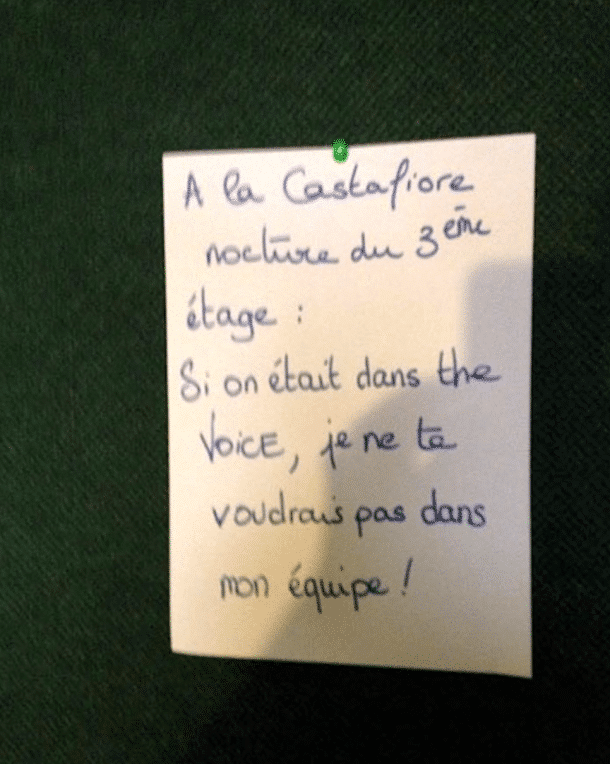 A la Castafiore
nocture du 3ème
étage :
Si on était dans the
VoiCE, je ne te
voudrais pas dans
mon équipe !